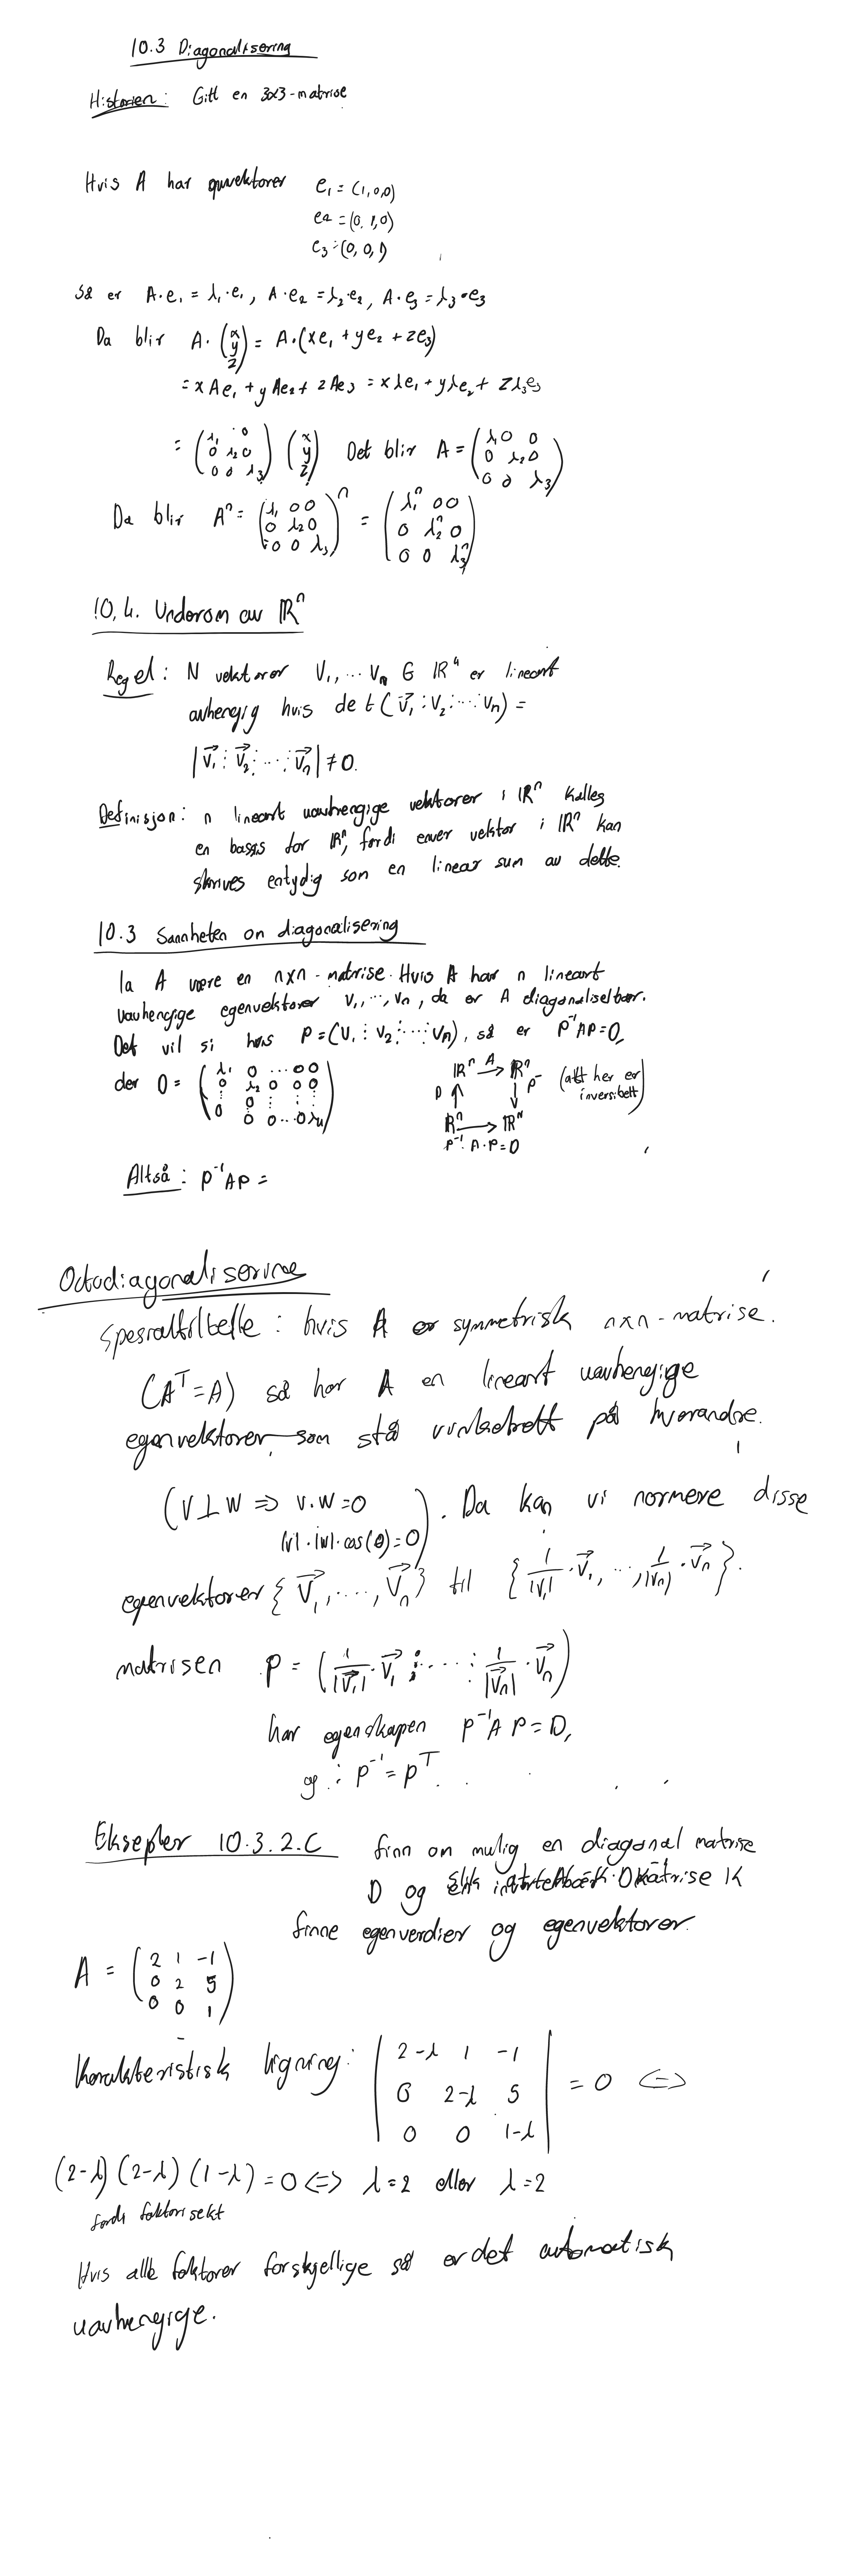 10.3 Diagonalisering
Historien: Gitt en 3x3-matrise
Hvis A har egenvektorer e₁ = (1,0,0)
e₂ = (0,1,0)
e₃ = (0,0,1)
Så er A·e₁ = λ₁·e₁, A·e₂ = λ₂·e₂, A·e₃ = λ₃·e₃
Da blir A·(x y z) = A·(xe₁ + ye₂ + ze₃)
= xAe₁ + yAe₂ + zAe₃ = xλe₁ + yλe₂ + zλ₃e₃
= (λ₁ 0 0 λ₂ 0 0 0 λ₃) (x y z) Det blir A = (λ₁ 0 0 0 λ₂ 0 0 0 λ₃)
Da blir Aⁿ = (λ₁ 0 0 0 λ₂ 0 0 0 λ₃)ⁿ = (λ₁ⁿ 0 0 0 λ₂ⁿ 0 0 0 λ₃ⁿ)
10.4. Underom av ℝⁿ
Regel: N vektorer V₁, ... Vₙ ∈ ℝⁿ er lineært
avhengig hvis det(V⃗₁ ⋮ V₂ ⋮ ... ⋮ Vₙ) =
|V⃗₁ ⋮ V⃗₂ ⋮ ... ⋮ V⃗ₙ| ≠ 0.
Definisjon: n lineært uavhengige vektorer i ℝⁿ kalles
en basis for ℝⁿ, fordi enver vektor i ℝⁿ kan
skrives entydig som en linear sum av dette.
10.3 Sannheten om diagonalisering
la A være en nxn-matrise. Hvis A har n lineært
uavhengige egenvektorer v₁, ..., vₙ, da er A diagonaliselbar.
Det vil si hvis P = (V₁ ⋮ V₂ ⋮ ... ⋮ Vₙ), så er P⁻¹AP = D,
der D = (λ₁ 0 ... 0 0 0 λ₂ 0 0 0 ⋮ 0 ⋮ ⋮ ⋮ 0 0 0 ... 0 λₙ)
ℝⁿ A → ℝⁿ
D ↑ ↓ P⁻ (alt her er inversibelt)
ℝⁿ → ℝⁿ
P⁻¹·A·P = D
Altså: P⁻¹AP =
Octodiagonalisering
Spesialtilfelle: hvis A er symmetrisk nxn-matrise.
(Aᵀ = A) så har A en lineært uavhengige
egenvektorer som stå vinkelrett på hverandre.
(V ⊥ W ⇒ V·W = 0
|v|·|w|·cos(θ) = 0). Da kan vi normere disse
egenvektorer {V⃗₁, ..., V⃗ₙ} til {1/|V₁|·V⃗₁, ..., 1/|Vₙ|·V⃗ₙ}.
matrisen P = (1/|V⃗₁|·V⃗₁ ⋮ ... ⋮ 1/|V⃗ₙ|·V⃗ₙ)
har egenskapen P⁻¹AP = D,
og : P⁻¹ = Pᵀ.
Eksepler 10.3.2.C finn om mulig en diagonal matrise
D og
finne egenverdier og egenvektorer.
A = (2 1 -1 0 2 5 0 0 1)
Karakteristisk ligning: |2-λ 1 -1 0 2-λ 5 0 0 1-λ| = 0 ⇔
(2-λ)(2-λ)(1-λ) = 0 ⇔ λ = 2 eller λ = 2
fordi faktorisekt
Hvis alle faktorer forskjellige så er det automatisk
uavhengige.